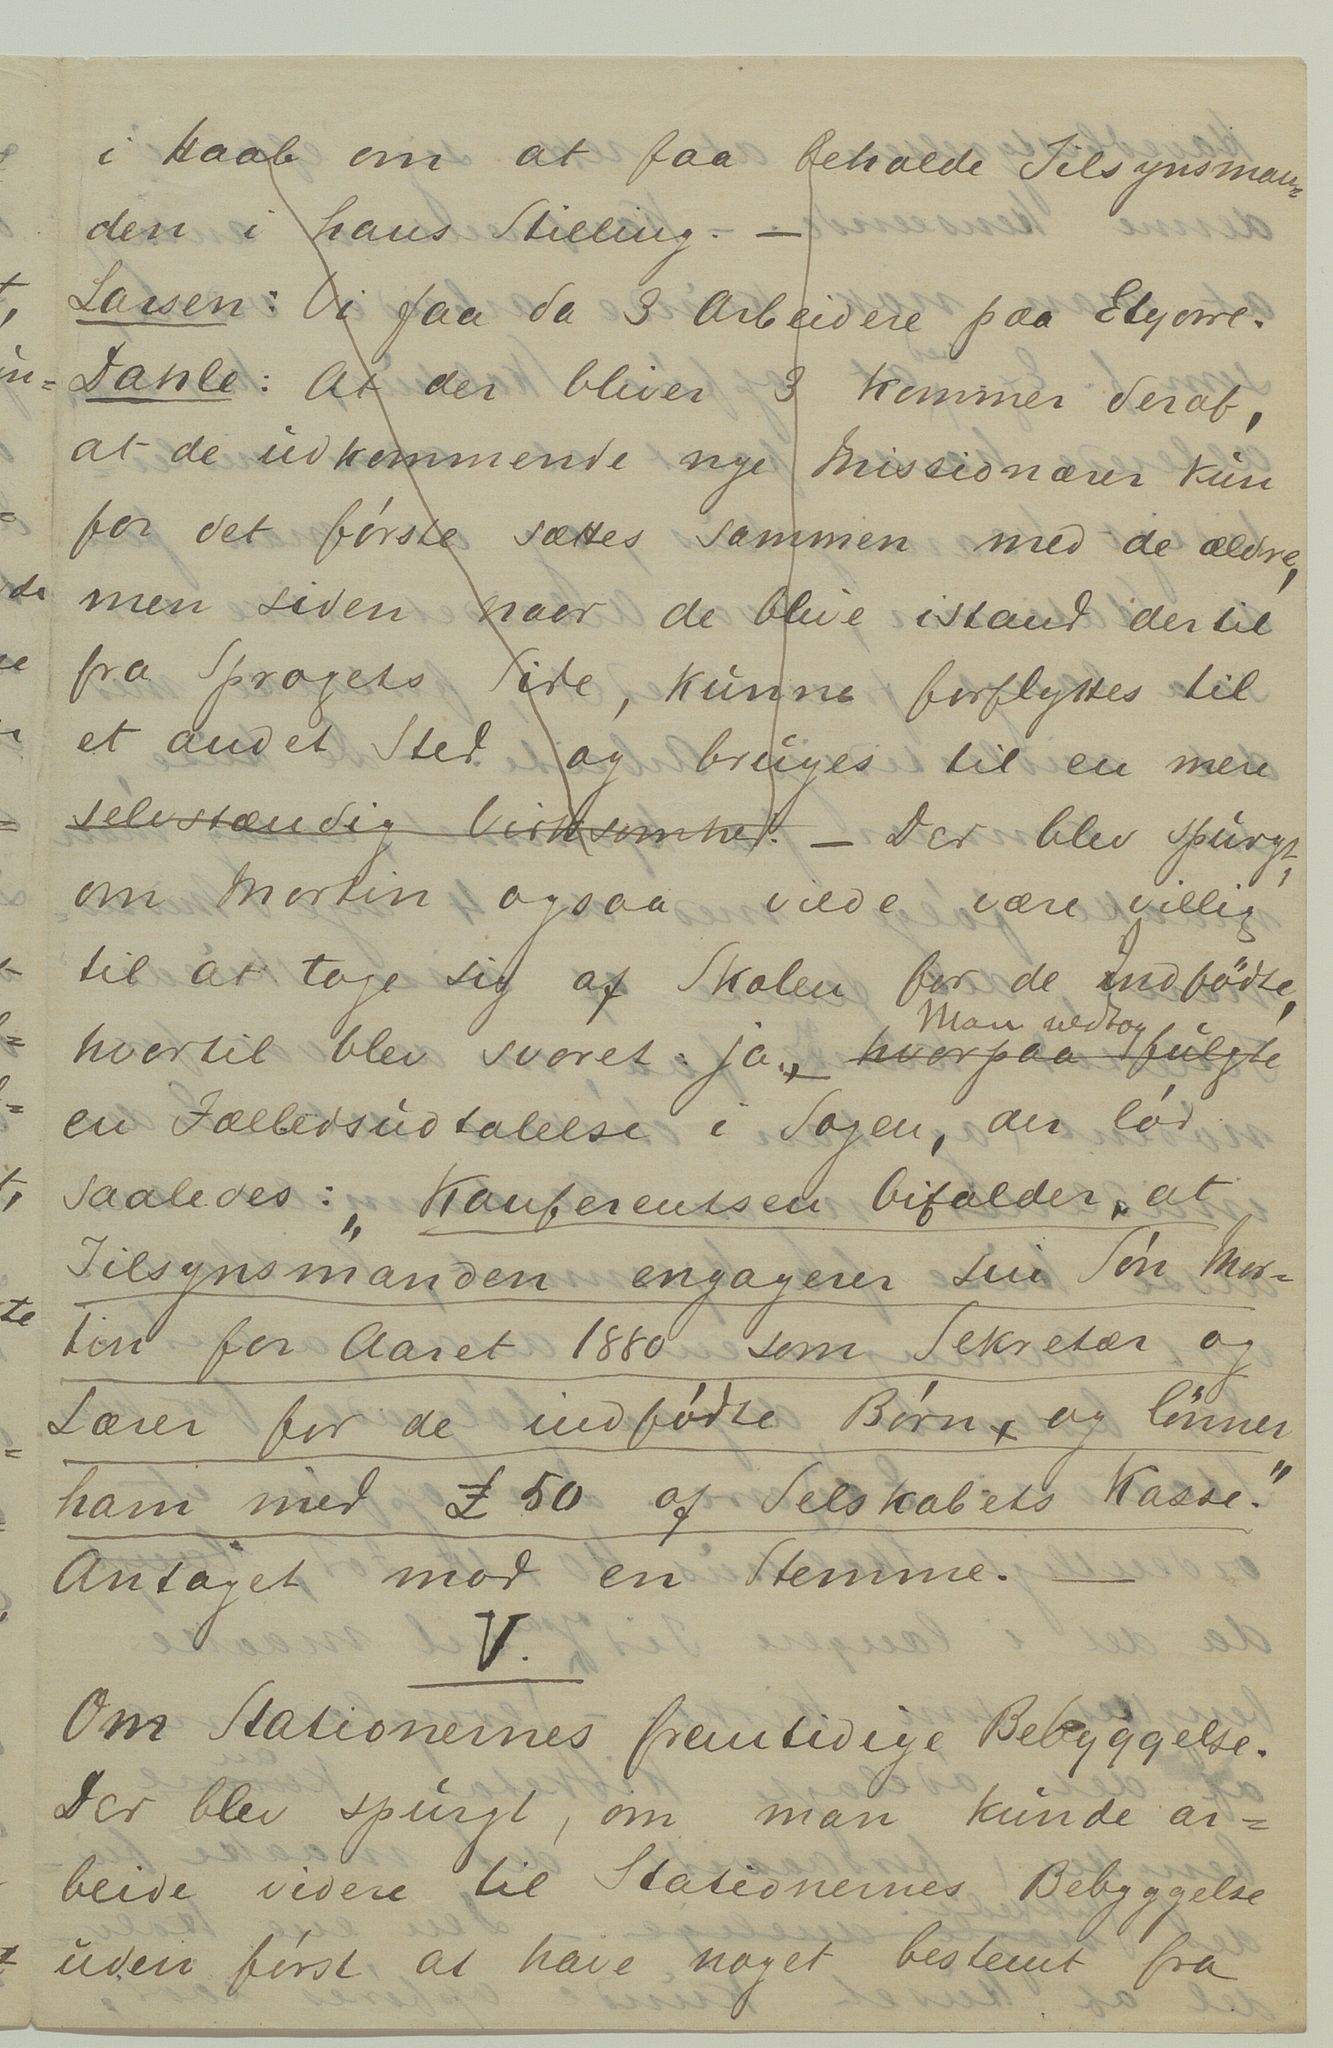 i Haab om at faa beholde Tilsynsman=
den i hans Stilling. —
Larsen: Vi faa da 3 Arbeidere paa Etyowe.
Dahle: At der bliver 3 kommer deraf,
at de udkommende nye Missionærer kun
for det første sættes sammen med de ældre,
men siden naar de blive istand dertil
fra Sprogets Side, kunne forflyttes til
et andet Sted og bruges til en mere
selvstændig Virksomhed. — Der blev spurgt,
om Martin ogsaa vilde være villig
til at tage sig af Skolen for de Indfødte,
hvortil blev svaret: ja., — hvorpaa fulgte
Man vedtog
en Fælledsudtalelse i Sagen, der lød
saaledes: „Konferentsen bifalder, at
Tilsynsmanden engagerer sin Søn Mar=
tin for Aaret 1880 som Sekretær og
Lærer for de indfødte Børn, og lønner
ham med £ 50 af Selskabets Kasse."
Antaget mod en Stemme. —
V.
Om Stationernes fremtidige Bebyggelse.
Der blev spurgt, om man kunde ar=
beide videre til Stationernes Bebyggelse
uden først at have noget bestemt fra